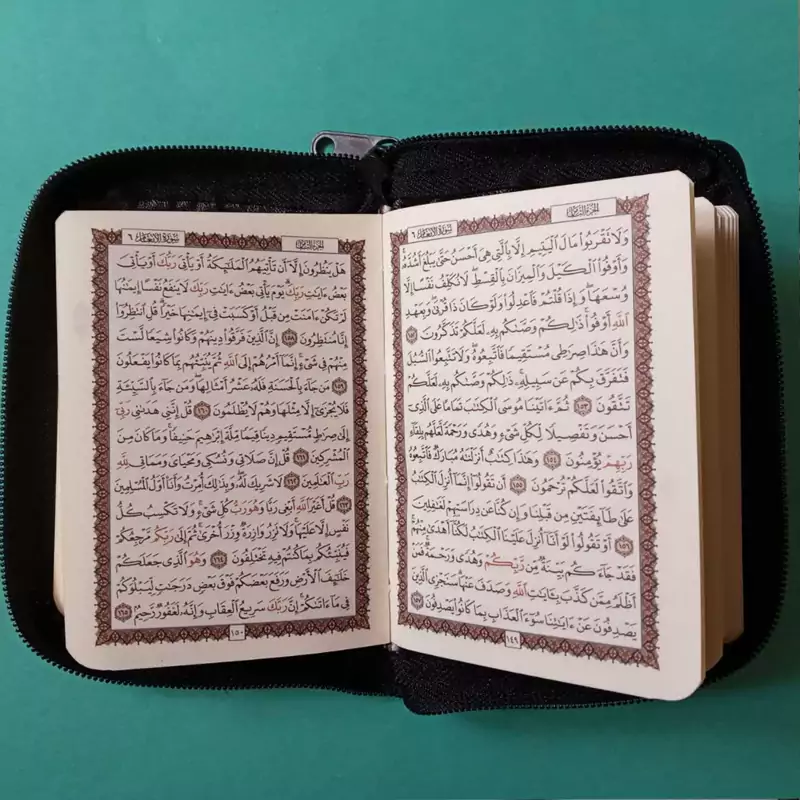 الجزء الثامن
سورة الأنعام ٦
وَلَا تَقْرَبُوا۟ مَالَ ٱلْيَتِيمِ إِلَّا بِٱلَّتِى هِىَ أَحْسَنُ حَتَّىٰ يَبْلُغَ أَشُدَّهُۥ
وَأَوْفُوا۟ ٱلْكَيْلَ وَٱلْمِيزَانَ بِٱلْقِسْطِ لَا نُكَلِّفُ نَفْسًا إِلَّا
وُسْعَهَا وَإِذَا قُلْتُمْ فَٱعْدِلُوا۟ وَلَوْ كَانَ ذَا قُرْبَىٰ وَبِعَهْدِ
ٱللَّهِ أَوْفُوا۟ ذَٰلِكُمْ وَصَّىٰكُم بِهِۦ لَعَلَّكُمْ تَذَكَّرُونَ ١٥٢
وَأَنَّ هَٰذَا صِرَٰطِى مُسْتَقِيمًا فَٱتَّبِعُوهُ وَلَا تَتَّبِعُوا۟ ٱلسُّبُلَ
فَتَفَرَّقَ بِكُمْ عَن سَبِيلِهِۦ ذَٰلِكُمْ وَصَّىٰكُم بِهِۦ لَعَلَّكُمْ
تَتَّقُونَ ١٥٣ ثُمَّ ءَاتَيْنَا مُوسَى ٱلْكِتَٰبَ تَمَامًا عَلَى ٱلَّذِىٓ
أَحْسَنَ وَتَفْصِيلًا لِّكُلِّ شَىْءٍ وَهُدًى وَرَحْمَةً لَّعَلَّهُم بِلِقَآءِ
رَبِّهِمْ يُؤْمِنُونَ ١٥٤ وَهَٰذَا كِتَٰبٌ أَنزَلْنَٰهُ مُبَارَكٌ فَٱتَّبِعُوهُ
وَٱتَّقُوا۟ لَعَلَّكُمْ تُرْحَمُونَ ١٥٥ أَن تَقُولُوٓا۟ إِنَّمَآ أُنزِلَ ٱلْكِتَٰبُ
عَلَىٰ طَآئِفَتَيْنِ مِن قَبْلِنَا وَإِن كُنَّا عَن دِرَاسَتِهِمْ لَغَٰفِلِينَ
١٥٦ أَوْ تَقُولُوا۟ لَوْ أَنَّآ أُنزِلَ عَلَيْنَا ٱلْكِتَٰبُ لَكُنَّآ أَهْدَىٰ مِنْهُمْ
فَقَدْ جَآءَكُم بَيِّنَةٌ مِّن رَّبِّكُمْ وَهُدًى وَرَحْمَةٌ فَمَنْ
أَظْلَمُ مِمَّن كَذَّبَ بِـَٔايَٰتِ ٱللَّهِ وَصَدَفَ عَنْهَا سَنَجْزِى ٱلَّذِينَ
يَصْدِفُونَ عَنْ ءَايَٰتِنَا سُوٓءَ ٱلْعَذَابِ بِمَا كَانُوا۟ يَصْدِفُونَ ١٥٧
١٤٩
الجزء الثامن
سورة الأنعام ٦
هَلْ يَنظُرُونَ إِلَّآ أَن تَأْتِيَهُمُ ٱلْمَلَٰٓئِكَةُ أَوْ يَأْتِىَ رَبُّكَ أَوْ يَأْتِىَ
بَعْضُ ءَايَٰتِ رَبِّكَ يَوْمَ يَأْتِى بَعْضُ ءَايَٰتِ رَبِّكَ لَا يَنفَعُ نَفْسًا إِيمَٰنُهَا
لَمْ تَكُنْ ءَامَنَتْ مِن قَبْلُ أَوْ كَسَبَتْ فِىٓ إِيمَٰنِهَا خَيْرًا قُلِ ٱنتَظِرُوٓا۟
إِنَّا مُنتَظِرُونَ ١٥٨ إِنَّ ٱلَّذِينَ فَرَّقُوا۟ دِينَهُمْ وَكَانُوا۟ شِيَعًا لَّسْتَ
مِنْهُمْ فِى شَىْءٍ إِنَّمَآ أَمْرُهُمْ إِلَى ٱللَّهِ ثُمَّ يُنَبِّئُهُم بِمَا كَانُوا۟ يَفْعَلُونَ
١٥٩ مَن جَآءَ بِٱلْحَسَنَةِ فَلَهُۥ عَشْرُ أَمْثَالِهَا وَمَن جَآءَ بِٱلسَّيِّئَةِ
فَلَا يُجْزَىٰٓ إِلَّا مِثْلَهَا وَهُمْ لَا يُظْلَمُونَ ١٦٠ قُلْ إِنَّنِى هَدَىٰنِى رَبِّىٓ
إِلَىٰ صِرَٰطٍ مُّسْتَقِيمٍ دِينًا قِيَمًا مِّلَّةَ إِبْرَٰهِيمَ حَنِيفًا وَمَا كَانَ مِنَ
ٱلْمُشْرِكِينَ ١٦١ قُلْ إِنَّ صَلَاتِى وَنُسُكِى وَمَحْيَاىَ وَمَمَاتِى لِلَّهِ
رَبِّ ٱلْعَٰلَمِينَ ١٦٢ لَا شَرِيكَ لَهُۥ وَبِذَٰلِكَ أُمِرْتُ وَأَنَا۠ أَوَّلُ ٱلْمُسْلِمِينَ
١٦٣ قُلْ أَغَيْرَ ٱللَّهِ أَبْغِى رَبًّا وَهُوَ رَبُّ كُلِّ شَىْءٍ وَلَا تَكْسِبُ كُلُّ
نَفْسٍ إِلَّا عَلَيْهَا وَلَا تَزِرُ وَازِرَةٌ وِزْرَ أُخْرَىٰ ثُمَّ إِلَىٰ رَبِّكُم مَّرْجِعُكُمْ
فَيُنَبِّئُكُم بِمَا كُنتُمْ فِيهِ تَخْتَلِفُونَ ١٦٤ وَهُوَ ٱلَّذِى جَعَلَكُمْ
خَلَٰٓئِفَ ٱلْأَرْضِ وَرَفَعَ بَعْضَكُمْ فَوْقَ بَعْضٍ دَرَجَٰتٍ لِّيَبْلُوَكُمْ
فِى مَآ ءَاتَىٰكُمْ إِنَّ رَبَّكَ سَرِيعُ ٱلْعِقَابِ وَإِنَّهُۥ لَغَفُورٌ رَّحِيمٌ ١٦٥
١٥٠